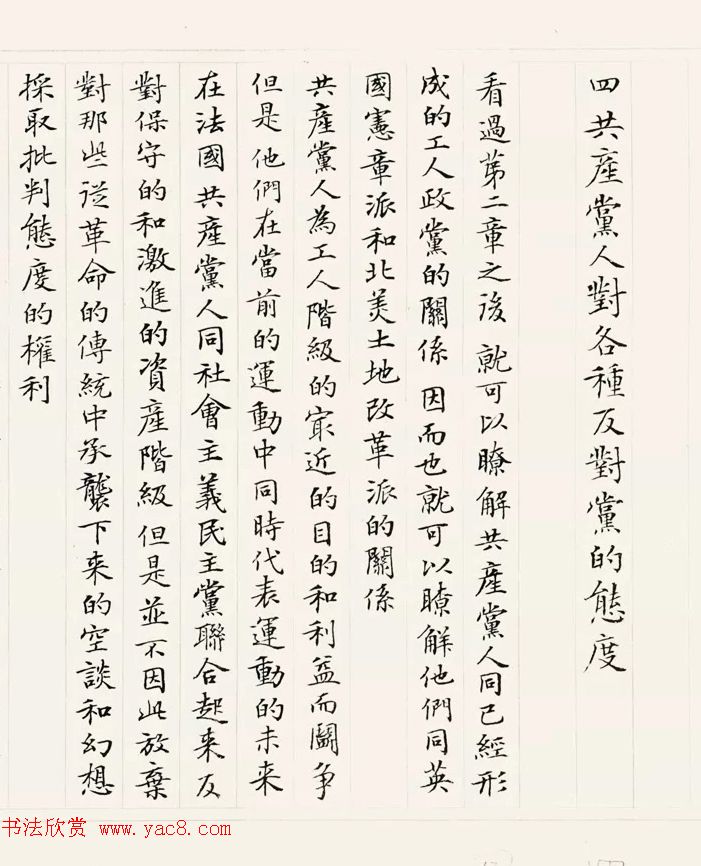 四共産黨人對各種反對黨的態度
看過第二章之後 就可以瞭解共産黨人同已經形
成的工人政黨的關係 因而也就可以瞭解他們同英
國憲章派和北美土地改革派的關係
共産黨人為工人階級的最近的目的和利益而鬪争
但是他們在當前的運動中同時代表運動的未来
在法國共産黨人同社會主義民主黨聯合起来反
對保守的和激進的資産階級 但是並不因此放棄
對那些從革命的傳統中承襲下来的空談和幻想
採取批判態度的權利
书法欣赏 www.yac8.com